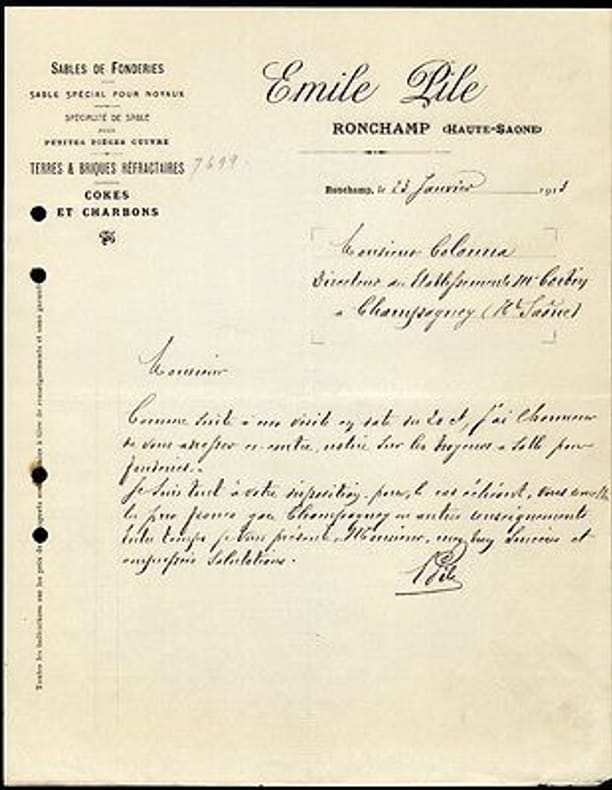 SABLES DE FONDERIES
SABLE SPÉCIAL POUR NOYAUX
SPÉCIALITÉ DE SABLE
POUR
PETITES PIÈCES CUIVRE
TERRES & BRIQUES RÉFRACTAIRES
COKES
ET CHARBONS
Emile Pile
RONCHAMP (HAUTE-SAONE)
Ronchamp, le 23 Janvier 1913
Monsieur Colonna
Directeur des Etablissements
à Champagney (Hte Saône)
Monsieur
Comme suite à ma visite en date du 20 ct, j'ai l'honneur
de vous adresser ci-contre, notice sur les noyaux
fonderies.
Je suis tout à votre disposition pour, le cas échéant, vous
les prix franco gare Champagney ou autres renseignements
Entre temps je vous présente, Monsieur, mes bien sincères et
empressées salutations.
EPile
Toutes les indications sur les prix de à titre de renseignements et sans garantie